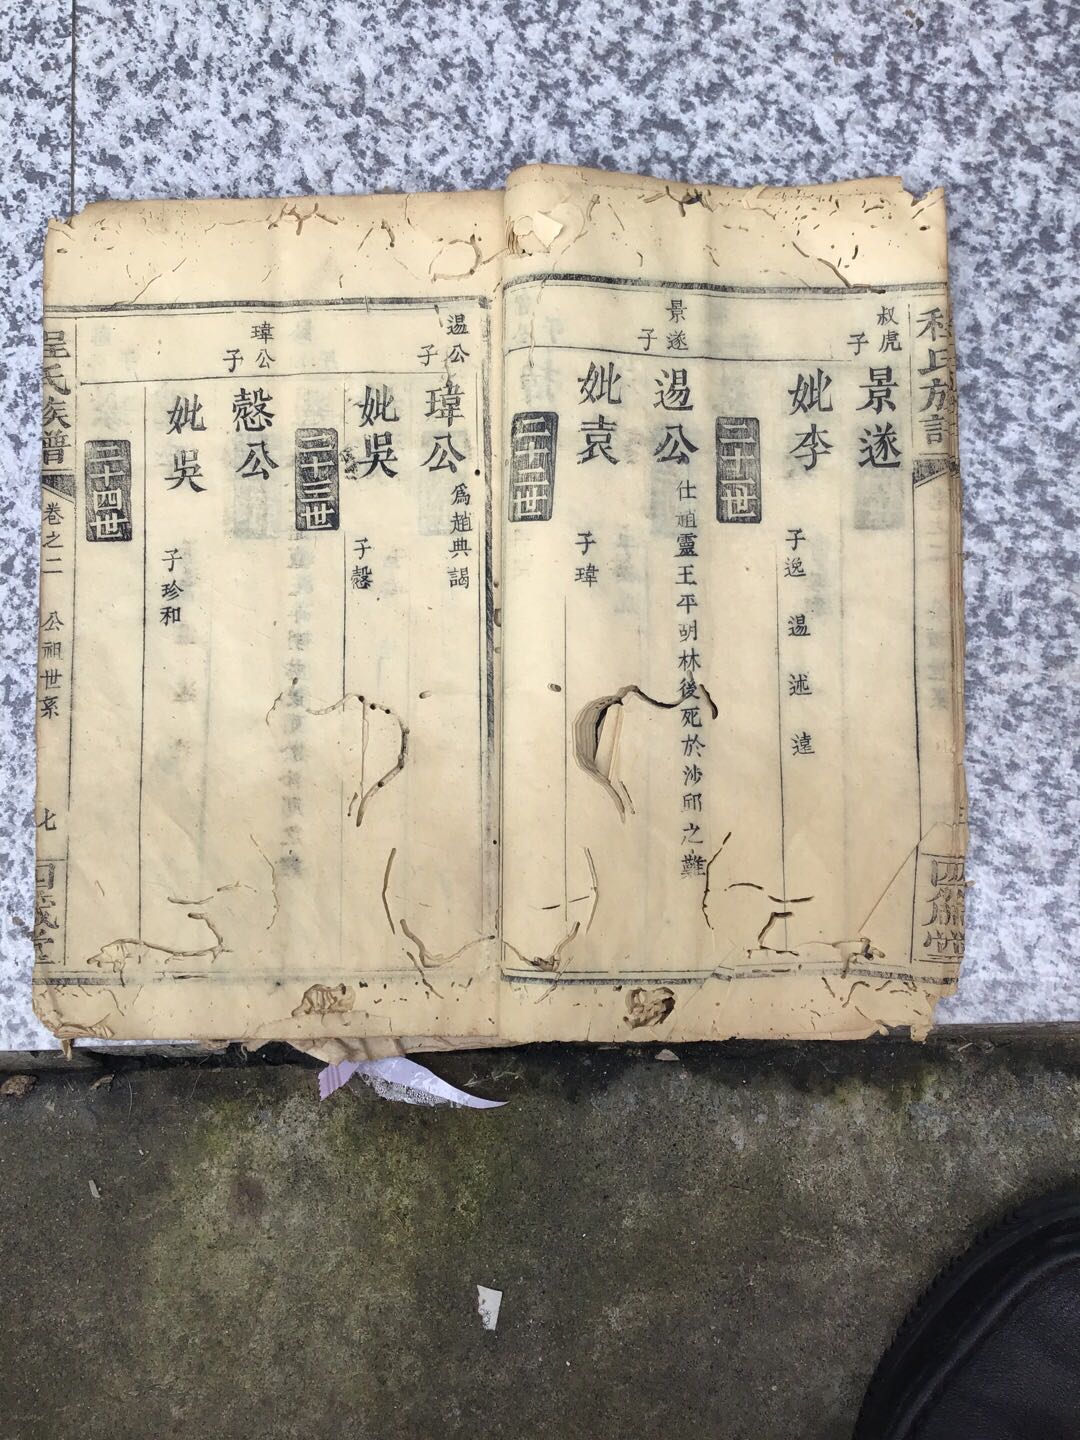 叔虎
子
景遂
妣李
子逸 逷 述 遠
二十一世
景遂
子
逷公
仕趙靈王平胡林後死於沙邱之難
妣袁
子瑋
二十二世
逷公
子
瑋公
爲趙典謁
妣吳
子愨
二十三世
瑋公
子
愨公
妣吳
子珍和
二十四世
程氏族譜
卷之二
公祖世系
七